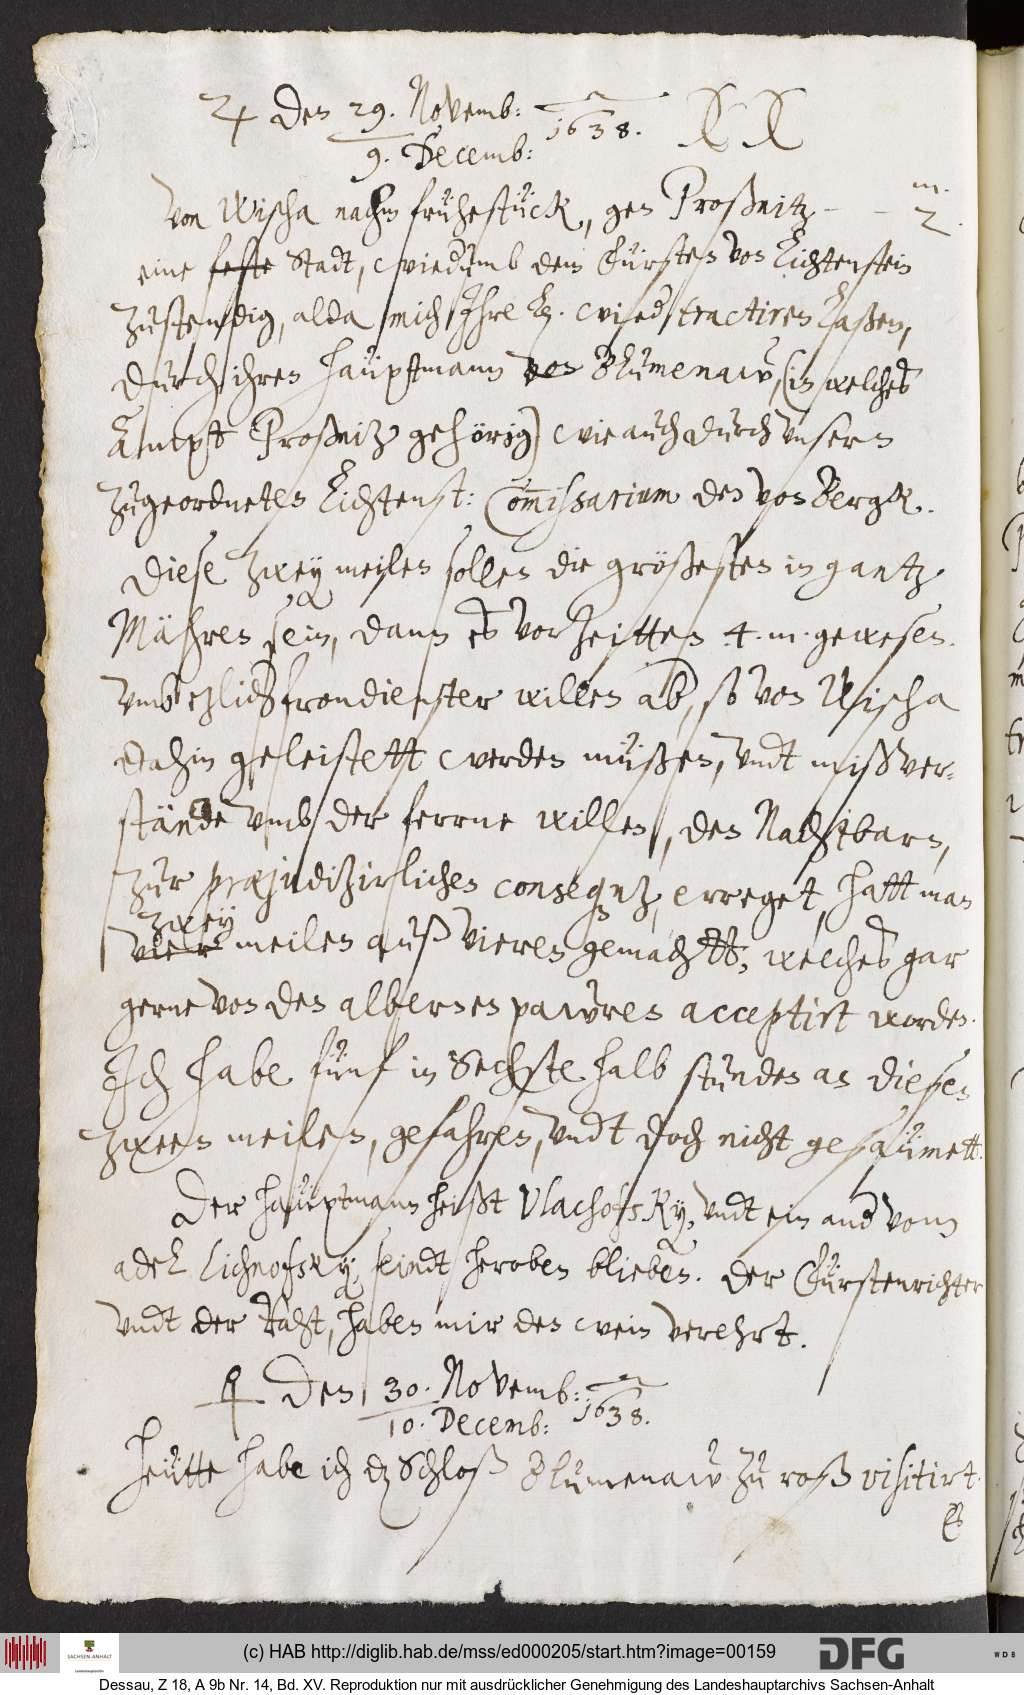 ♃ den 29. Novemb: 1638. XX
9. Decemb:
Von Wischa nachm frühestück, gen Proßnitz – – m. 2.
eine feste Stadt, wiedumb dem Fürsten von Lichtenstein
zustendig, alda mich Ihre L. wied tractiren laßen,
durch ihren hauptmann von Blumenaw, (in welches
Ampt Proßnitz gehörig) wie auch durch unsern
zugeordneten Lichtenst: Commissarium den von Bergk.
Diese zwey meilen sollen die größesten in gantz
Mähren sein, dann es vor zeitten 4. m. gewesen.
Umb etzlich frondienster willen ab, so von Wischa
dahin geleistett werden müßen, undt mißver-
stände umb der ferrne willen, den Nachtbarn,
zur præjudizirlichen conseqntz, erreget, hatt man
zwey
vier meilen auß vieren gemachtt, welches gar
gerne von den albernen pawren acceptirt worden.
Ich habe fünf in Sechste halb stunden an diesen
zween meilen, gefahren, undt doch nicht gesaümett.
Der hauptmann heißt Vlachofsky, undt ein and vom
adel Lichnofsky, seindt heroben blieben. Der Fürstenrichter
undt der Raht, haben mir den wein verehrt.
♀ den 30. Novemb: 1638.
10. Decemb:
Heütte habe ich dz Schloß Blumenaw zu roß visitirt.
Es
(c) HAB http://diglib.hab.de/mss/ed000205/start.htm?image=00159
SACHSEN-ANHALT
DFG
WDB
Dessau, Z 18, A 9b Nr. 14, Bd. XV. Reproduktion nur mit ausdrücklicher Genehmigung des Landeshauptarchivs Sachsen-Anhalt